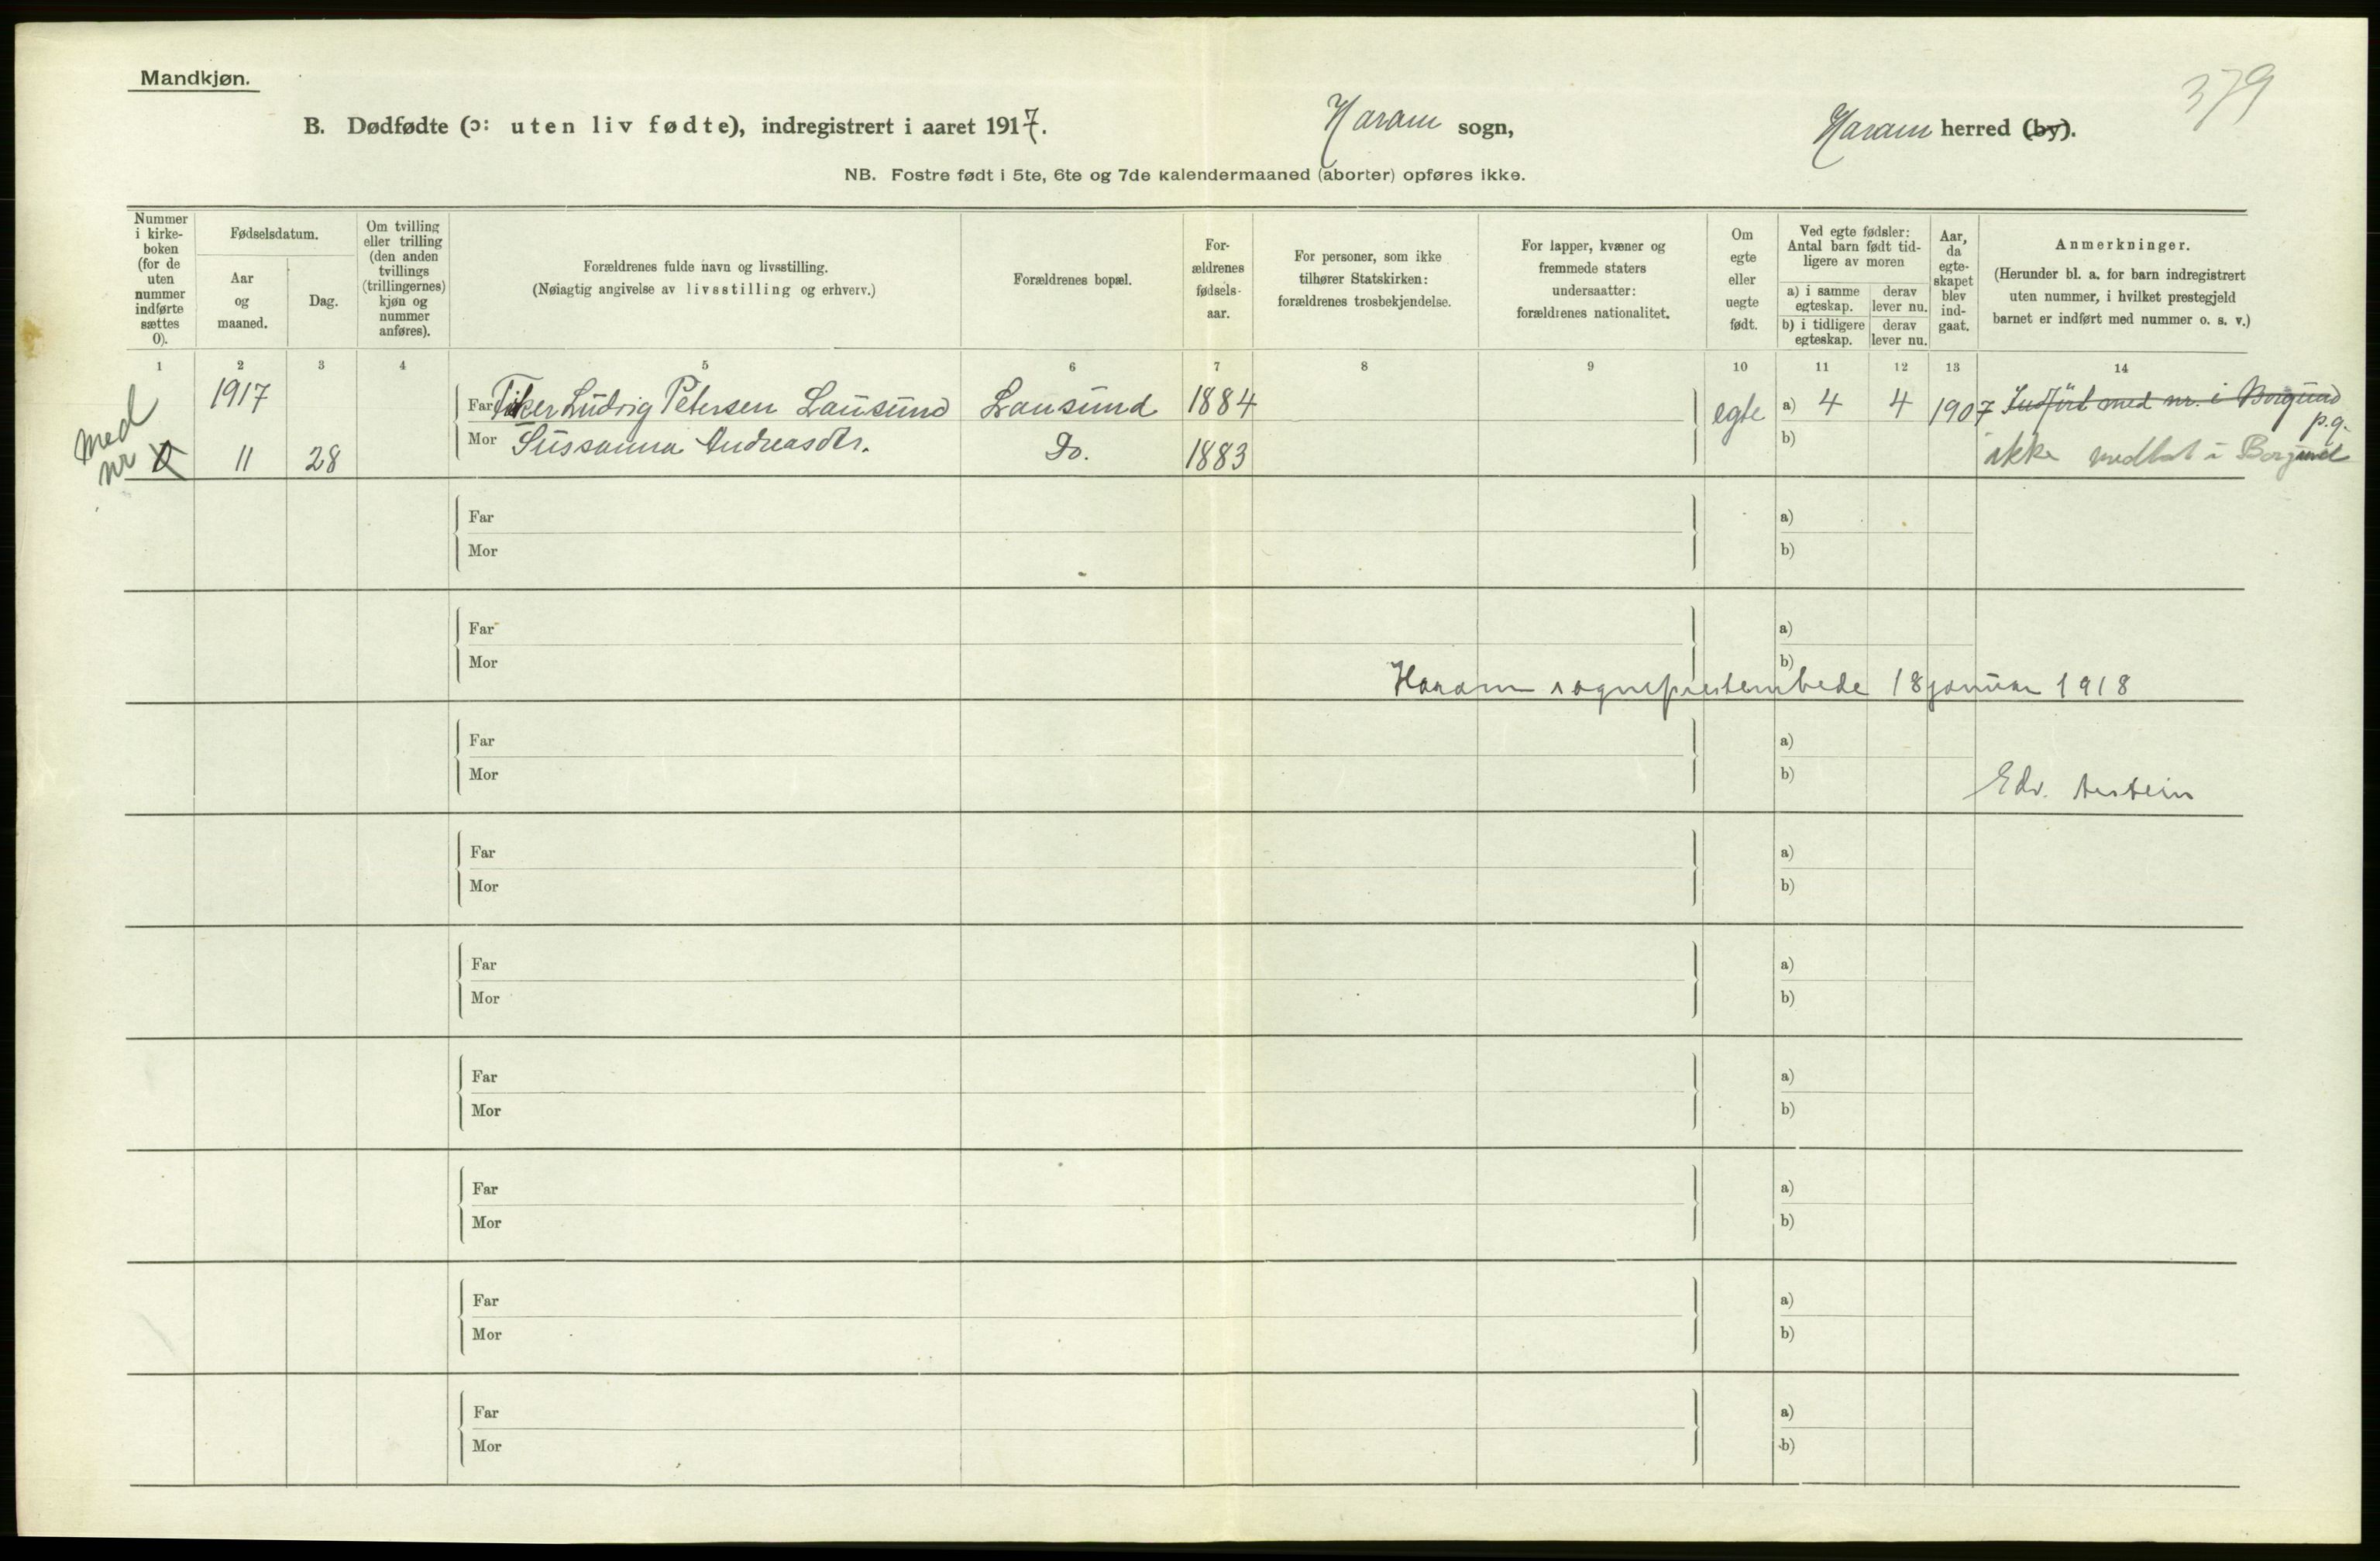 Mandkjøn.
379
B. Dødfødte (ɔ: uten liv fødte), indregistrert i aaret 1917. Haram sogn, Haram herred (by).
NB. Fostre født i 5te, 6te og 7de kalendermaaned (aborter) opføres ikke.
Nummer i kirke-boken (for de uten nummer indførte sættes 0).
Fødselsdatum.
Aar og maaned.
Dag.
Om tvilling eller trilling (den anden tvillings (trillingernes) kjøn og nummer anføres).
Forældrenes fulde navn og livsstilling.
(Nøiagtig angivelse av livsstilling og erhverv.)
Forældrenes bopæl.
For-ældrenes fødsels-aar.
For personer, som ikke tilhører Statskirken: forældrenes trosbekjendelse.
For lapper, kvæner og fremmede staters undersaatter: forældrenes nationalitet.
Om egte eller uegte født.
Ved egte fødsler: Antal barn født tid-ligere av moren
a) i samme egteskap.
derav lever nu.
b) i tidligere egteskap.
derav lever nu.
Aar, da egte-skapet blev ind-gaat.
Anmerkninger.
(Herunder bl. a. for barn indregistrert uten nummer, i hvilket prestegjeld barnet er indført med nummer o. s. v.)
1 2 3 4 5 6 7 8 9 10 11 12 13 14
1917 Far Fisker Ludvig Petersen Lausund Lausund 1884 egte a) 4 4 1907 Indført med nr. i Borgund p.g.
med nr 0 11 28 Mor Sussanna Andreasdtr. Do. 1883 b) ikke medtat i Borgund
Far a)
Mor b)
Far a)
Mor b)
Haram sogneprestembede 18 januar 1918
Far a)
Mor b)
Edv.
Far a)
Mor b)
Far a)
Mor b)
Far a)
Mor b)
Far a)
Mor b)
Far a)
Mor b)
Far a)
Mor b)